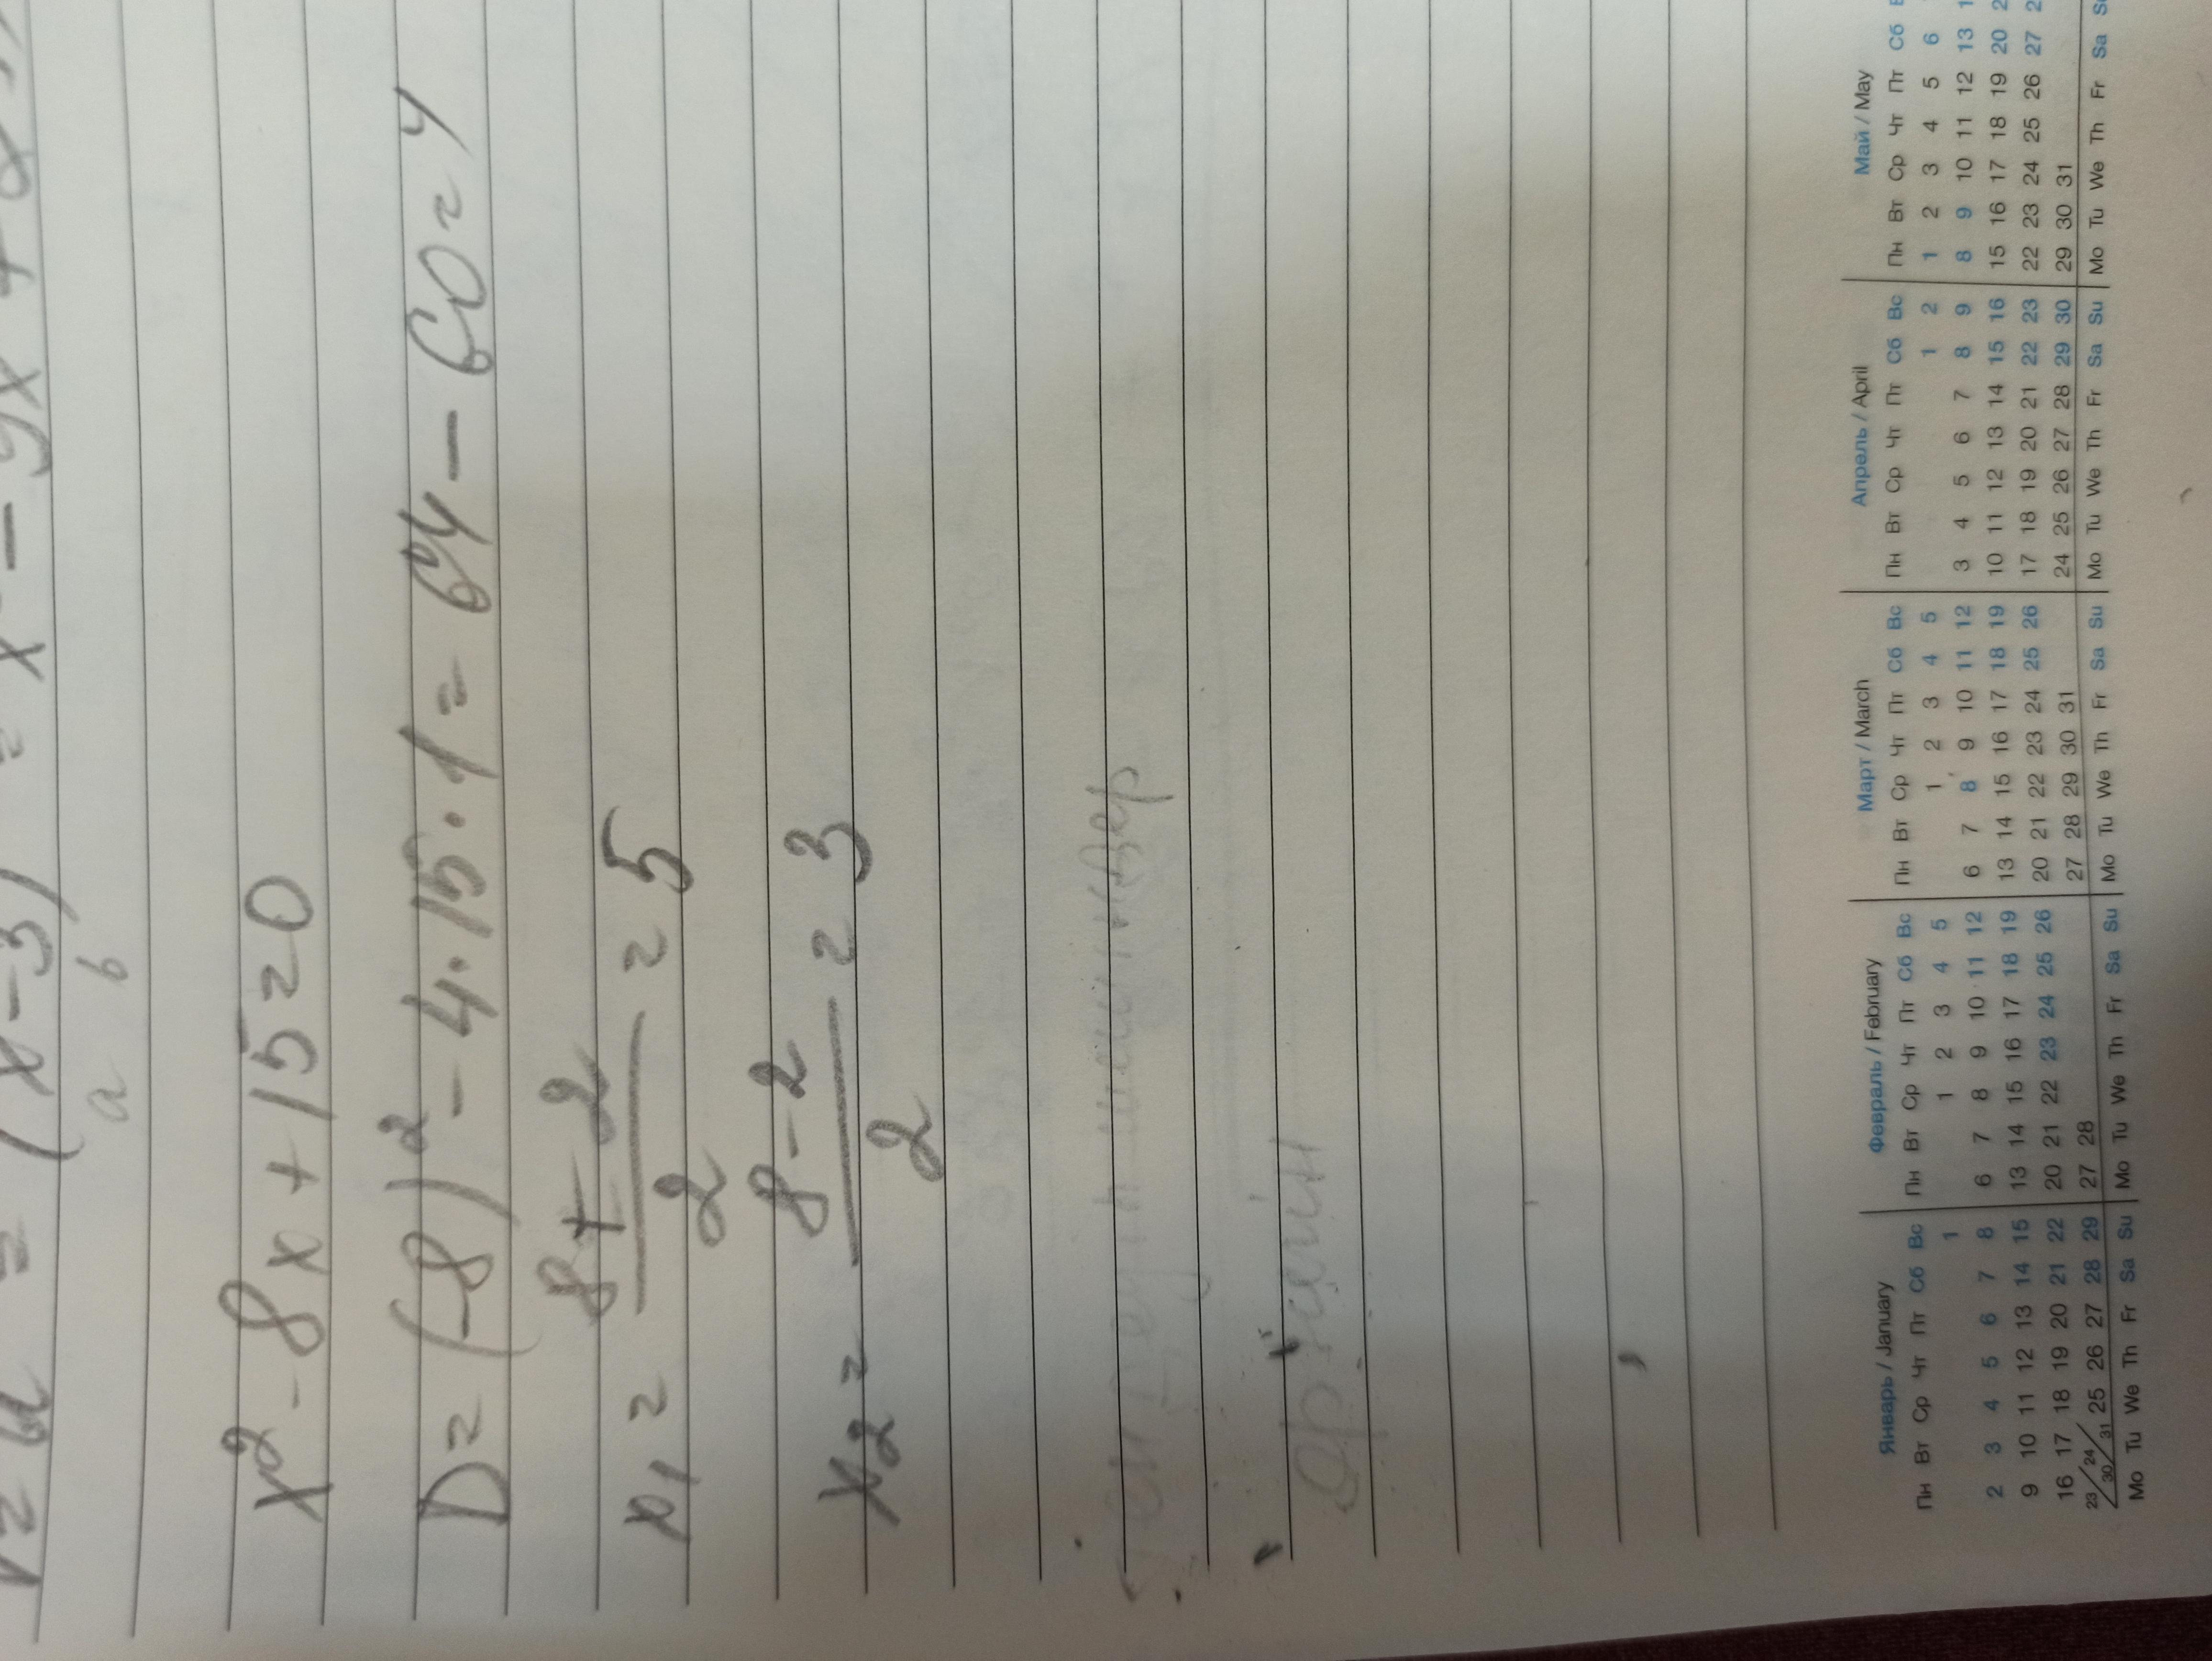 = (x-3) = x² -
a b
x² - 8x + 15 = 0
D = (-8)² - 4·15·1 = 64 - 60 = 4
x₁ = 8+2/2 = 5
x₂ = 8-2/2 = 3
Январь / January
Пн Вт Ср Чт Пт Сб Вс
1
2 3 4 5 6 7 8
9 10 11 12 13 14 15
16 17 18 19 20 21 22
23/30 24/31 25 26 27 28 29
Mo Tu We Th Fr Sa Su
Февраль / February
Пн Вт Ср Чт Пт Сб Вс
1 2 3 4 5
6 7 8 9 10 11 12
13 14 15 16 17 18 19
20 21 22 23 24 25 26
27 28
Mo Tu We Th Fr Sa Su
Март / March
Пн Вт Ср Чт Пт Сб Вс
1 2 3 4 5
6 7 8 9 10 11 12
13 14 15 16 17 18 19
20 21 22 23 24 25 26
27 28 29 30 31
Mo Tu We Th Fr Sa Su
Апрель / April
Пн Вт Ср Чт Пт Сб Вс
1 2
3 4 5 6 7 8 9
10 11 12 13 14 15 16
17 18 19 20 21 22 23
24 25 26 27 28 29 30
Mo Tu We Th Fr Sa Su
Май / May
Пн Вт Ср Чт Пт Сб
1 2 3 4 5 6
8 9 10 11 12 13
15 16 17 18 19 20
22 23 24 25 26 27
29 30 31
Mo Tu We Th Fr Sa